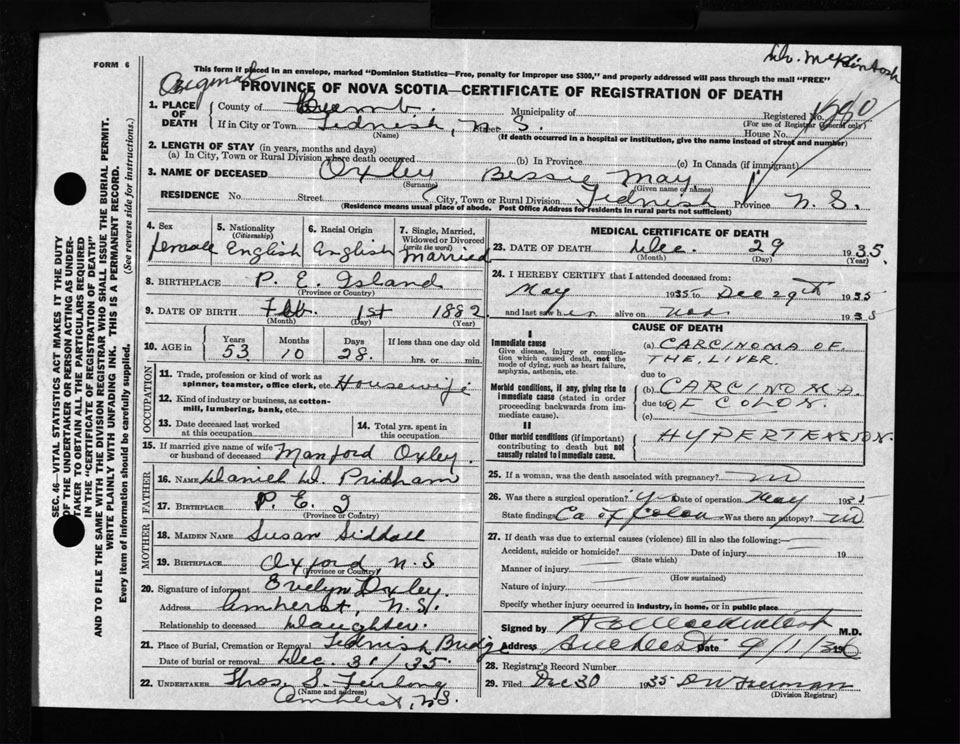 FORM 6
Dr. McKintosh
This form if placed in an envelope, marked "Dominion Statistics—Free, penalty for improper use $300," and properly addressed will pass through the mail "FREE"
Original
PROVINCE OF NOVA SCOTIA—CERTIFICATE OF REGISTRATION OF DEATH
1. PLACE OF DEATH County of Cumb. Municipality of Registered No.
(For use of Registrar General only)
If in City or Town Tidnish, N. S. House No.
(Name) (If death occurred in a hospital or institution, give the name instead of street and number)
2. LENGTH OF STAY (in years, months and days)
(a) In City, Town or Rural Division where death occurred (b) In Province (c) In Canada (if immigrant)
3. NAME OF DECEASED Oxley Bessie May
(Surname) (Given name or names)
RESIDENCE No Street City, Town or Rural Division Tidnish Province N. S.
(Residence means usual place of abode. Post Office Address for residents in rural parts not sufficient)
4. Sex 5. Nationality (Citizenship) 6. Racial Origin 7. Single, Married, Widowed or Divorced (write the word)
Female English English Married
8. BIRTHPLACE P. E. Island
(Province or Country)
9. DATE OF BIRTH Feb. 1st 1882
(Month) (Day) (Year)
10. AGE in Years Months Days If less than one day old
53 10 28. hrs. or min.
OCCUPATION
11. Trade, profession or kind of work as spinner, teamster, office clerk, etc. Housewife
12. Kind of industry or business, as cotton-mill, lumbering, bank, etc.
13. Date deceased last worked at this occupation 14. Total yrs. spent in this occupation
15. If married give name of wife or husband of deceased Manford Oxley.
FATHER
16. NAME Daniel W. Pridham
17. BIRTHPLACE P. E. I.
(Province or Country)
MOTHER
18. MAIDEN NAME Susan Sidhall
19. BIRTHPLACE Oxford N. S.
(Province or Country)
20. Signature of informant Evelyn Oxley.
Address Amherst, N. S.
Relationship to deceased Daughter.
21. Place of Burial, Cremation or Removal Tidnish Bridge
Date of burial or removal Dec. 31/35.
22. UNDERTAKER Thos. S. Furlong
(Name and address)
Amherst, N.S.
MEDICAL CERTIFICATE OF DEATH
23. DATE OF DEATH Dec. 29 1935.
(Month) (Day) (Year)
24. I HEREBY CERTIFY that I attended deceased from:
May 1935 to Dec 29th 1935
and last saw her alive on Nov. 1935
CAUSE OF DEATH
I
Immediate cause
Give disease, injury or complication which caused death, not the mode of dying, such as heart failure, asphyxia, asthenia, etc.
(a) CARCINOMA OF THE LIVER
due to
Morbid conditions, if any, giving rise to immediate cause (stated in order proceeding backwards from immediate cause).
(b) CARCINOMA
due to OF COLON.
(c)
II
Other morbid conditions (if important) contributing to death but not causally related to immediate cause.
HYPERTENSION.
25. If a woman, was the death associated with pregnancy? no
26. Was there a surgical operation? yes Date of operation May 1935
State findings Ca of Colon Was there an autopsy? no
27. If death was due to external causes (violence) fill in also the following:
Accident, suicide or homicide? Date of injury 19
(State which)
Manner of injury
(How sustained)
Nature of injury
Specify whether injury occurred in industry, in home, or in public place
Signed by M.D.
Address Amherst Date 9/1/36
28. Registrar's Record Number
29. Filed Dec 30 1935 D W Freeman
(Division Registrar)
SEC. 46—VITAL STATISTICS ACT MAKES IT THE DUTY OF THE UNDERTAKER OR PERSON ACTING AS UNDERTAKER TO OBTAIN ALL THE PARTICULARS REQUIRED IN THE "CERTIFICATE OF REGISTRATION OF DEATH" AND TO FILE THE SAME WITH THE DIVISION REGISTRAR WHO SHALL ISSUE THE BURIAL PERMIT.
WRITE PLAINLY WITH UNFADING INK. THIS IS A PERMANENT RECORD.
Every item of information should be carefully supplied. (See reverse side for instructions.)